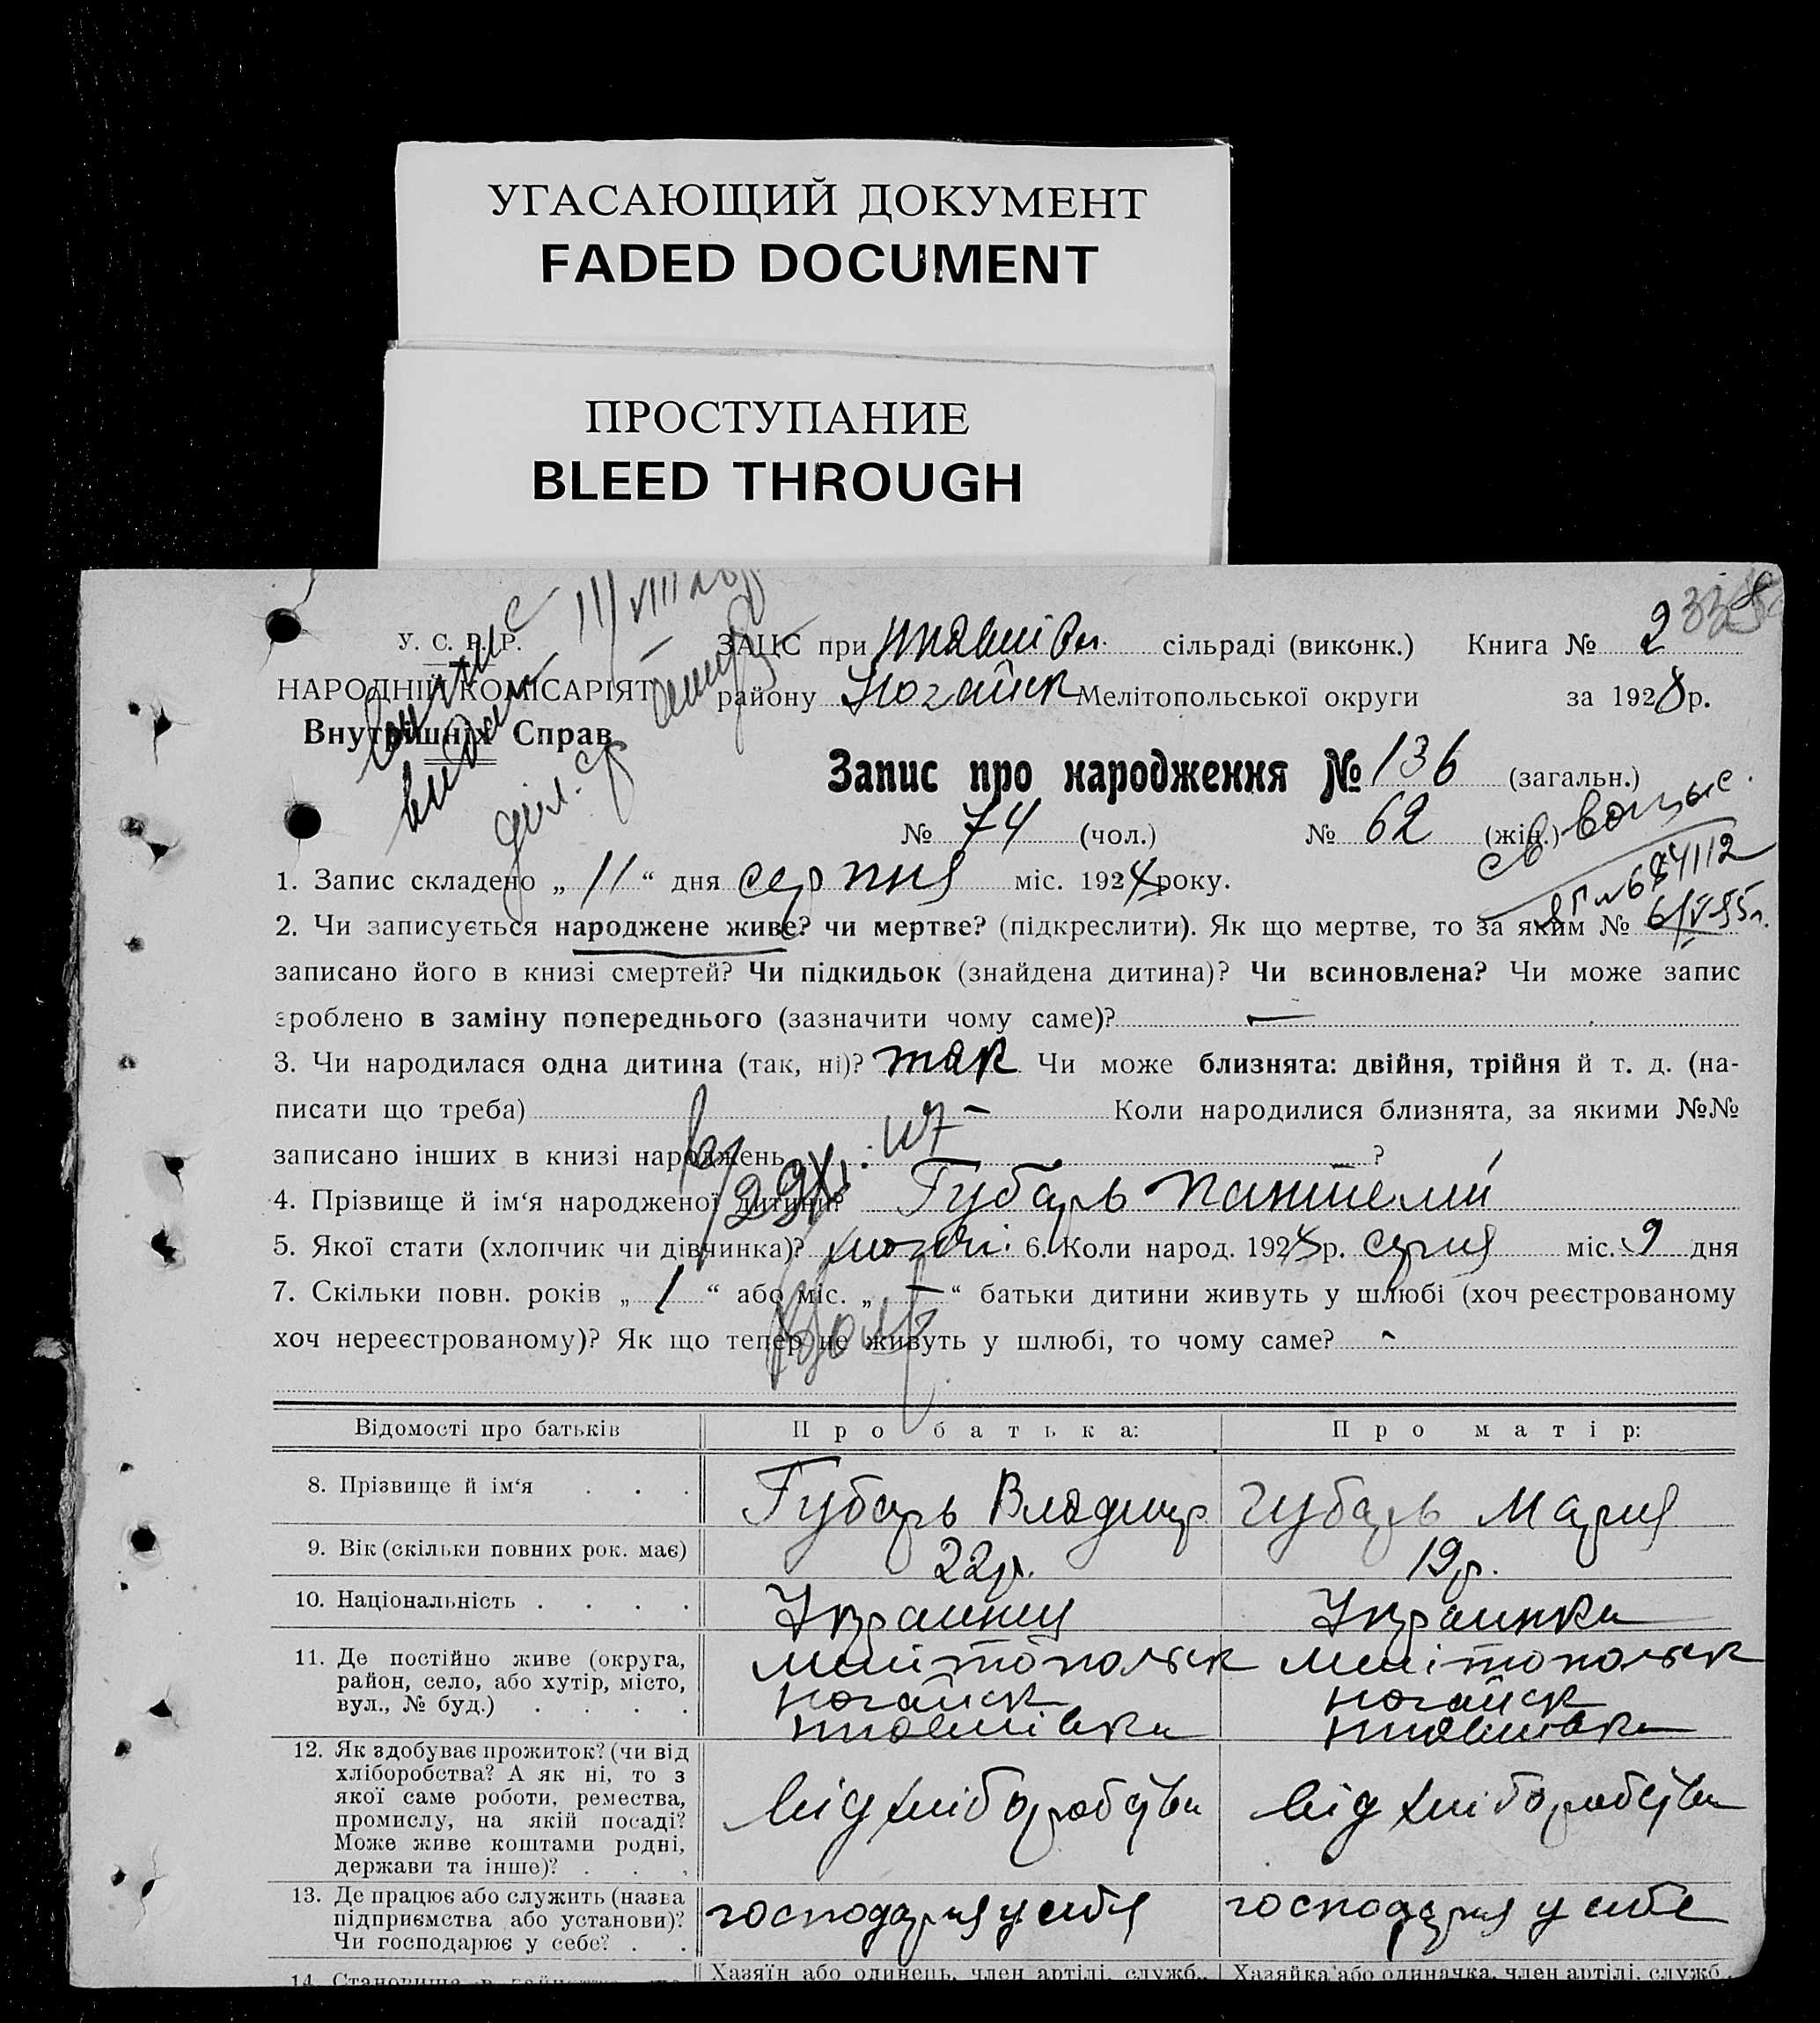 УГАСАЮЩИЙ ДОКУМЕНТ
FADED DOCUMENT
ПРОСТУПАНИЕ
BLEED THROUGH
У. С. Р. Р.
НАРОДНІЙ КОМІСАРІЯТ
Внутрішніх Справ
ЗАЦС при сільраді (виконк.) Книга № 2
району Ногайск Мелітопольської округи за 1928 р.
Запис про народження № 136 (загальн.)
№ 74 (чол.) № 62 (жін.)
1. Запис складено „ 11 “ дня серпня міс. 1928 року.
2. Чи записується народжене живе? чи мертве? (підкреслити). Як що мертве, то за яким №
записано його в книзі смертей? Чи підкидьок (знайдена дитина)? Чи всиновлена? Чи може запис
зроблено в заміну попереднього (зазначити чому саме)? —
3. Чи народилася одна дитина (так, ні)? так Чи може близнята: двійня, трійня й т. д. (на-
писати що треба) — Коли народилися близнята, за якими №№
записано інших в книзі народжень — ?
4. Прізвище й ім‘я народженої дитини? Губарь Пантелій
5. Якої стати (хлопчик чи дівчинка)? 6. Коли народ. 1928 р. серпня міс. 9 дня
7. Скільки повн. років „ 1 “ або міс. „ — “ батьки дитини живуть у шлюбі (хоч реєстрованому
хоч нереєстрованому)? Як що тепер не живуть у шлюбі, то чому саме? -
Відомості про батьків Про батька: Про матір:
8. Прізвище й ім‘я . . . Губарь Владимир Губарь Мария
9. Вік (скільки повних рок. має) 22 р. 19 р.
10. Національність . . . . Украинец Украинка
11. Де постійно живе (округа, Мелітопольск Мелітопольск
район, село, або хутір, місто, Ногайск Ногайск
вул., № буд.) . . . .
12. Як здобуває прожиток? (чи від
хліборобства? А як ні, то з
якої саме роботи, ремества, від хліборобства від хліборобства
промислу, на якій посаді?
Може живе коштами родні,
держави та інше)? . . .
13. Де працює або служить (назва господарня у себя господарня у себе
підприємства або установи)?
Чи господарює у себе? . .
Хазяїн або одинець, член артілі, служб., Хазяйка або одиначка, член артілі, служб.